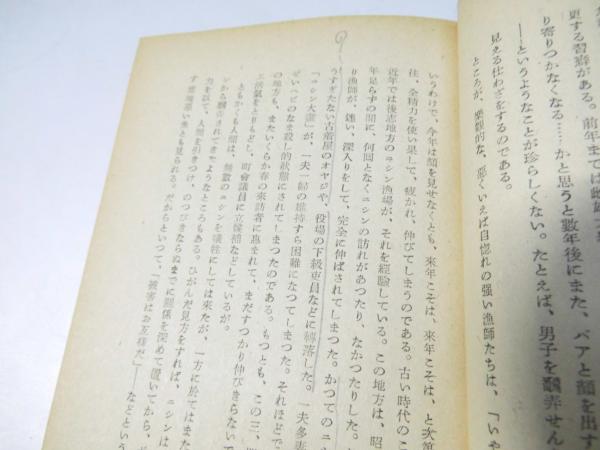 更する習癖がある。前年までは此
り寄りつかなくなる……かと思うと数年後にまた、パアと顔を出す
――というようなことが珍らしくない。たとえば、男子を翻弄せん
見える仕わざをするのである。
ところが、楽観的な、悪くいえば自惚れの強い漁師たちは、「いや
いうわけで、今年は顔を見せなくとも、来年こそは、来年こそは、と次第
往、全精力を使い果して、疲れ、伸びてしまうのである。古い時代のこ
近年では後志地方のニシン漁場が、それを経験している。この地方は、昭
年足らずの間に、何回となくニシンの訪れがあつたり、なかつたりした。
り漁師が、迷い、深入りをして、完全に伸ばされてしまつた。かつてのニシ
うすぎたない古着屋のオヤジや、役場の下級吏員などに零落した。一夫多妻
「ニシン大尽」が、一夫一婦の維持すら困難になつてしまつた。それほどで
せいヘビのなま殺し的状態にされてしまつたのである。もつとも、この三、
の地方も、またいくらか春の来訪者に恵まれて、まだすつかり伸びきらないで
活気をとりもどし、町会議員に立候補などしているが。
ともかくも人間は、無数のニシンを犠牲にしては来たが、一方に於てはまた
ンから翻弄されてきたようなところもある。ひがんだ見方をすれば、ニシンは
力を以て、人間を引きつけ、のつぴきならぬまでに関係を深めて置いてから、
す悪魔扱いさとも見られる。だからといつて、「被害はお互様だ」――などという